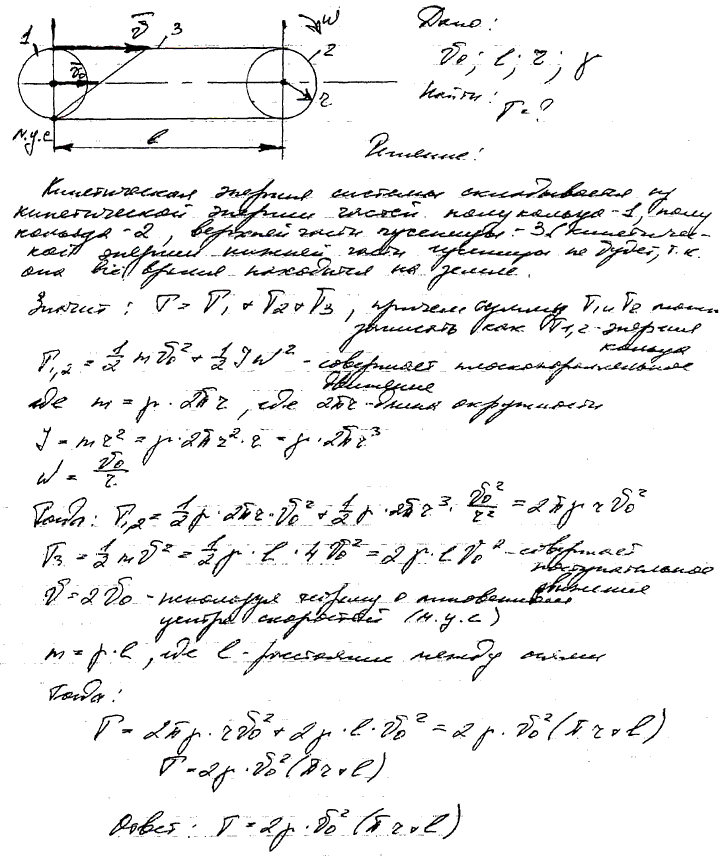 1 v̄ 3 ω 2
v̄₀ r
м.ц.с
l
Дано:
v₀; l; r; γ
Найти:
T = ?
Решение:
Кинетическая энергия системы складывается из
кинетической энергии частей полукольца-1, полу
кольца-2, верхней части гусеницы-3. (Кинетичес-
кой энергии нижней части гусеницы не будет, т.к.
она всё время находится на земле.
Значит: T = T₁ + T₂ + T₃, причем сумму T₁ и T₂ можно
записать как T₁,₂ - энергия
кольца
T₁,₂ = 1/2 m v₀² + 1/2 J ω² - совершает плоскопараллельное
движение
где m = γ · 2πr, где 2πr - длина окружности
J = m r² = γ · 2πr² · r = γ · 2πr³
ω = v₀/r
Тогда: T₁,₂ = 1/2 γ · 2πr · v₀² + 1/2 γ · 2πr³ · v₀²/r² = 2πγ r v₀²
T₃ = 1/2 m v² = 1/2 γ · l · 4v₀² = 2γ · l v₀² - совершает
поступательное
движение
v = 2v₀ - используя теорему о мгновенном
центре скоростей (м.ц.с)
m = γ · l, где l - расстояние между осями
Тогда:
T = 2πγ · r v₀² + 2γ · l · v₀² = 2γ · v₀² (πr + l)
T = 2γ · v₀² (πr + l)
Ответ: T = 2γ · v₀² (πr + l)